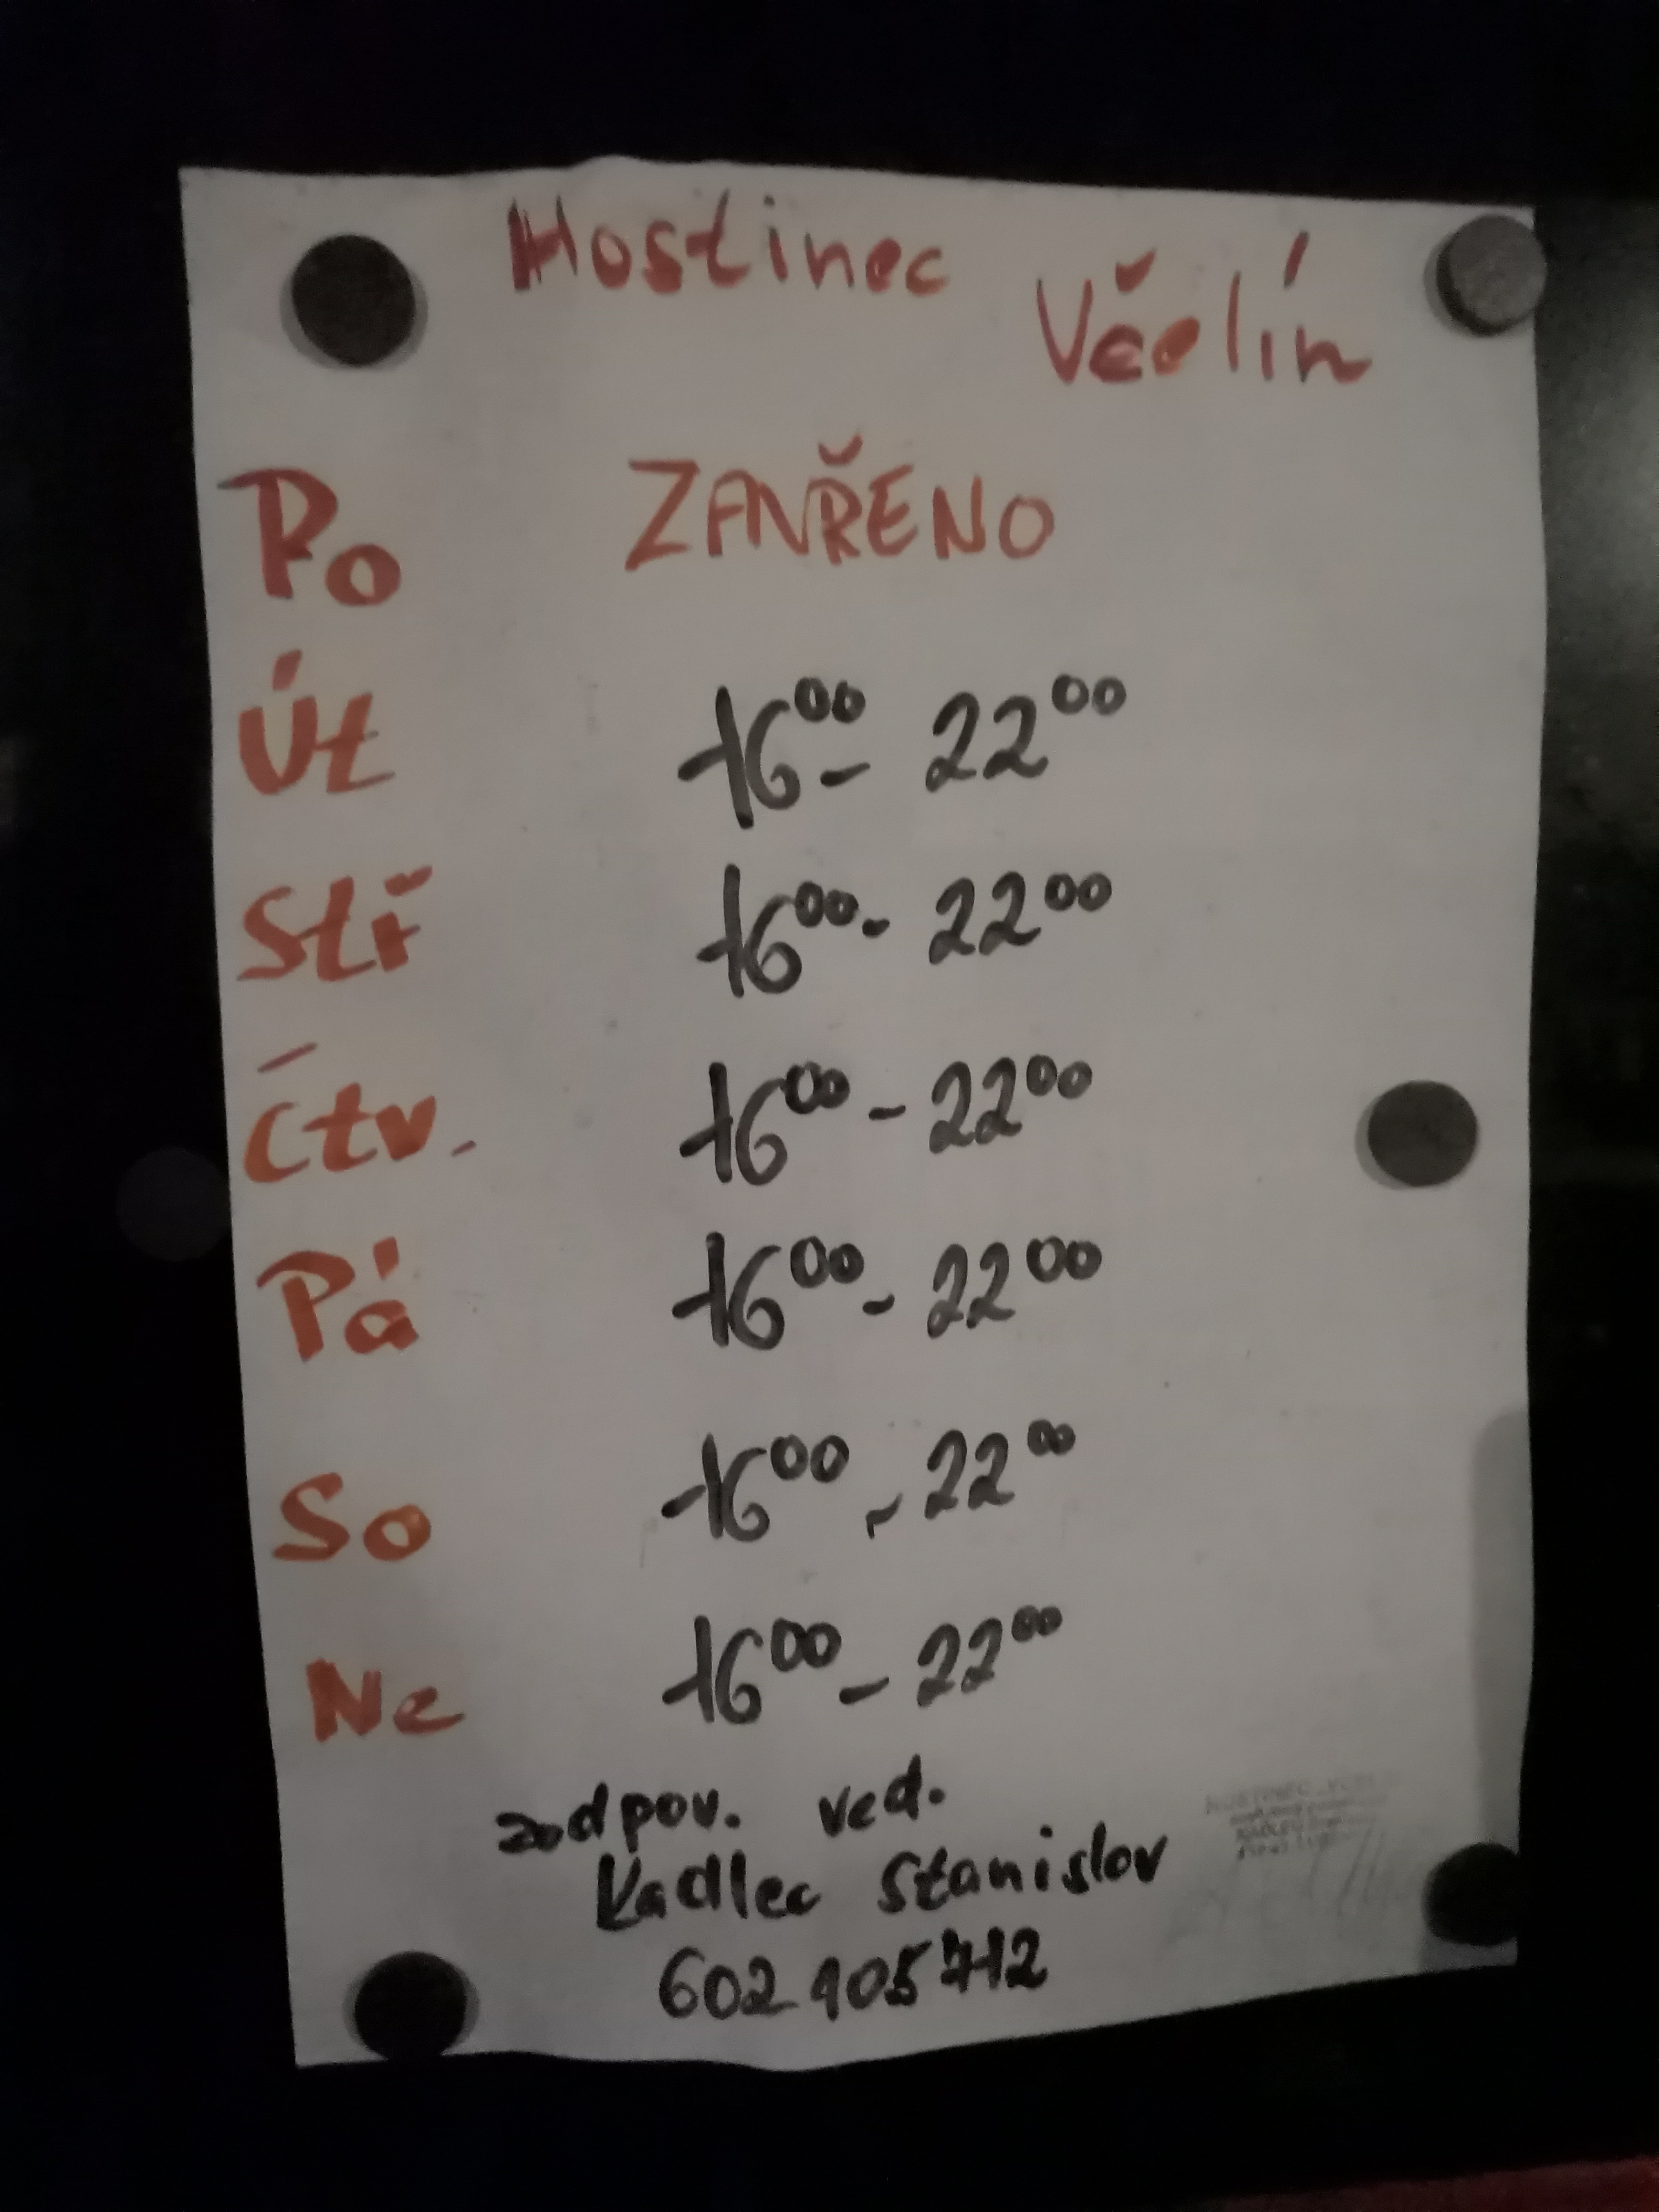 Hostinec
Včelín
Po ZAVŘENO
Út 16⁰⁰ - 22⁰⁰
Stř 16⁰⁰ - 22⁰⁰
Čtv. 16⁰⁰ - 22⁰⁰
Pá 16⁰⁰ - 22⁰⁰
So 16⁰⁰ - 22⁰⁰
Ne 16⁰⁰ - 22⁰⁰
zodpov. ved.
Kadlec Stanislav
602 105 712
HOSTINEC